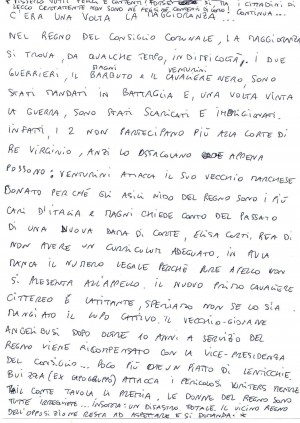 TUTTI FELICI E CONTENTI (FORSE SI, MA I CITTADINI DI
LECCO CERTAMENTE NON SONO NÉ FELICI NÉ CONTENTI DI LORO! CONTINUA...
C'ERA UNA VOLTA LA MAGGIORANZA...
NEL REGNO DEL CONSIGLIO COMUNALE, LA MAGGIORANZA
SI TROVA, DA QUALCHE TEMPO, IN DIFFICOLTÀ. I DUE
MAGNI VENTURINI
GUERRIERI, IL BARBUTO E IL CAVALIERE NERO, SONO
STATI MANDATI IN BATTAGLIA E, UNA VOLTA VINTA
LA GUERRA, SONO STATI SCARICATI E IMPRIGIONATI.
INFATTI, I 2 NON PARTECIPANO PIÙ ALLA CORTE DI
RE VIRGINIO, ANZI LO OSTACOLANO APPENA
POSSONO. VENTURINI ATTACCA IL SUO VECCHIO MARCHESE
BONATO PERCHÉ GLI ASILI NIDO DEL REGNO SONO I PIÙ
CARI D'ITALIA E MAGNI CHIEDE CONTO DEL PASSATO
DI UNA NUOVA DAMA DI CORTE, ELISA CORTI, REA DI
NON AVERE UN CURRICULUM ADEGUATO. IN AULA
MANCA IL NUMERO LEGALE PERCHÈ PURE APELLO NON
SI PRESENTA ALL'APPELLO. IL NUOVO PRIMO CAVALIERE
CITTEREO È LATITANTE, SPERIAMO NON SE LO SIA
MANGIATO IL LUPO CATTIVO. IL VECCHIO-GIOVANE
ANGELIBUSI DOPO OLTRE 10 ANNI A SERVIZIO DEL
REGNO VIENE RICOMPENSATO CON LA VICE-PRESIDENZA
DEL CONSIGLIO... POCO PIÙ CHE UN PIATTO DI LENTICCHIE.
BUIZZA (EX CAPOGRUPPO) ATTACCA I PERICOLOSI WRITERS MENTRE
TALE CORTE TAVOLA LI PREMIA, LE DONNE DEL REGNO SONO
TUTTE IRREQUIETE... INSOMMA: UN DISASTRO TOTALE. IL VICINO REGNO
DELL'OPPOSIZIONE RESTA AD ASPETTARE E SI DOMANDA *